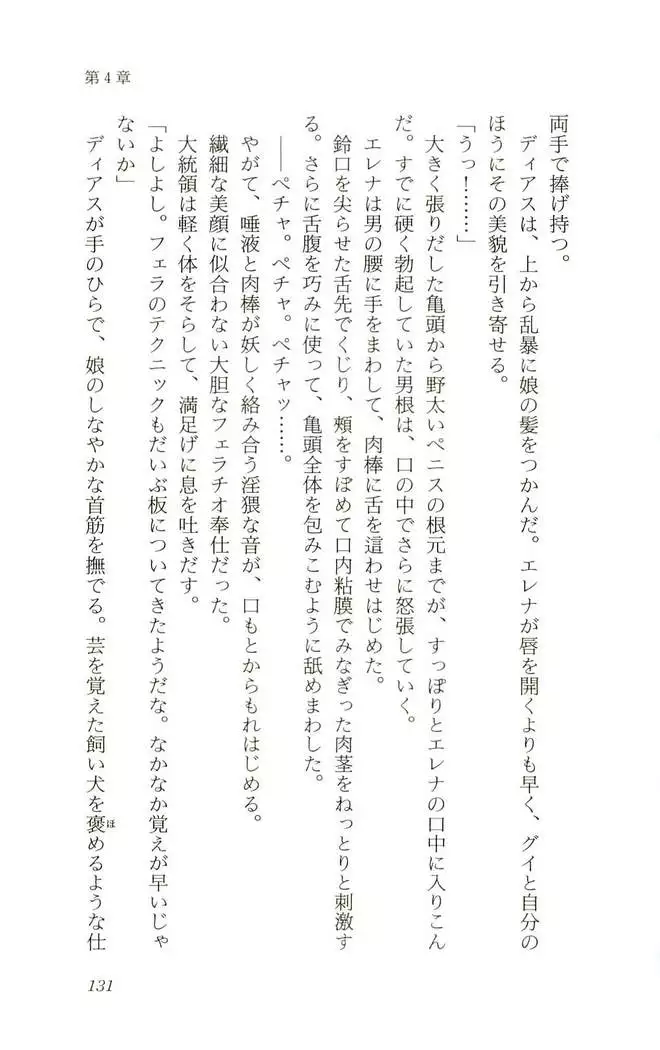 第4章
両手で捧げ持つ。
ディアスは、上から乱暴に娘の髪をつかんだ。エレナが唇を開くよりも早く、グイと自分の
ほうにその美貌を引き寄せる。
「うっ！……」
大きく張りだした亀頭から野太いペニスの根元までが、すっぽりとエレナの口中に入りこん
だ。すでに硬く勃起していた男根は、口の中でさらに怒張していく。
エレナは男の腰に手をまわして、肉棒に舌を這わせはじめた。
鈴口を尖らせた舌先でくじり、頰をすぼめて口内粘膜でみなぎった肉茎をねっとりと刺激す
る。さらに舌腹を巧みに使って、亀頭全体を包みこむように舐めまわした。
――ペチャ。ペチャ。ペチャッ……。
やがて、唾液と肉棒が妖しく絡み合う淫猥な音が、口もとからもれはじめる。
繊細な美顔に似合わない大胆なフェラチオ奉仕だった。
大統領は軽く体をそらして、満足げに息を吐きだす。
「よしよし。フェラのテクニックもだいぶ板についてきたようだな。なかなか覚えが早いじゃ
ないか」
ディアスが手のひらで、娘のしなやかな首筋を撫でる。芸を覚えた飼い犬を褒ほめるような仕
131